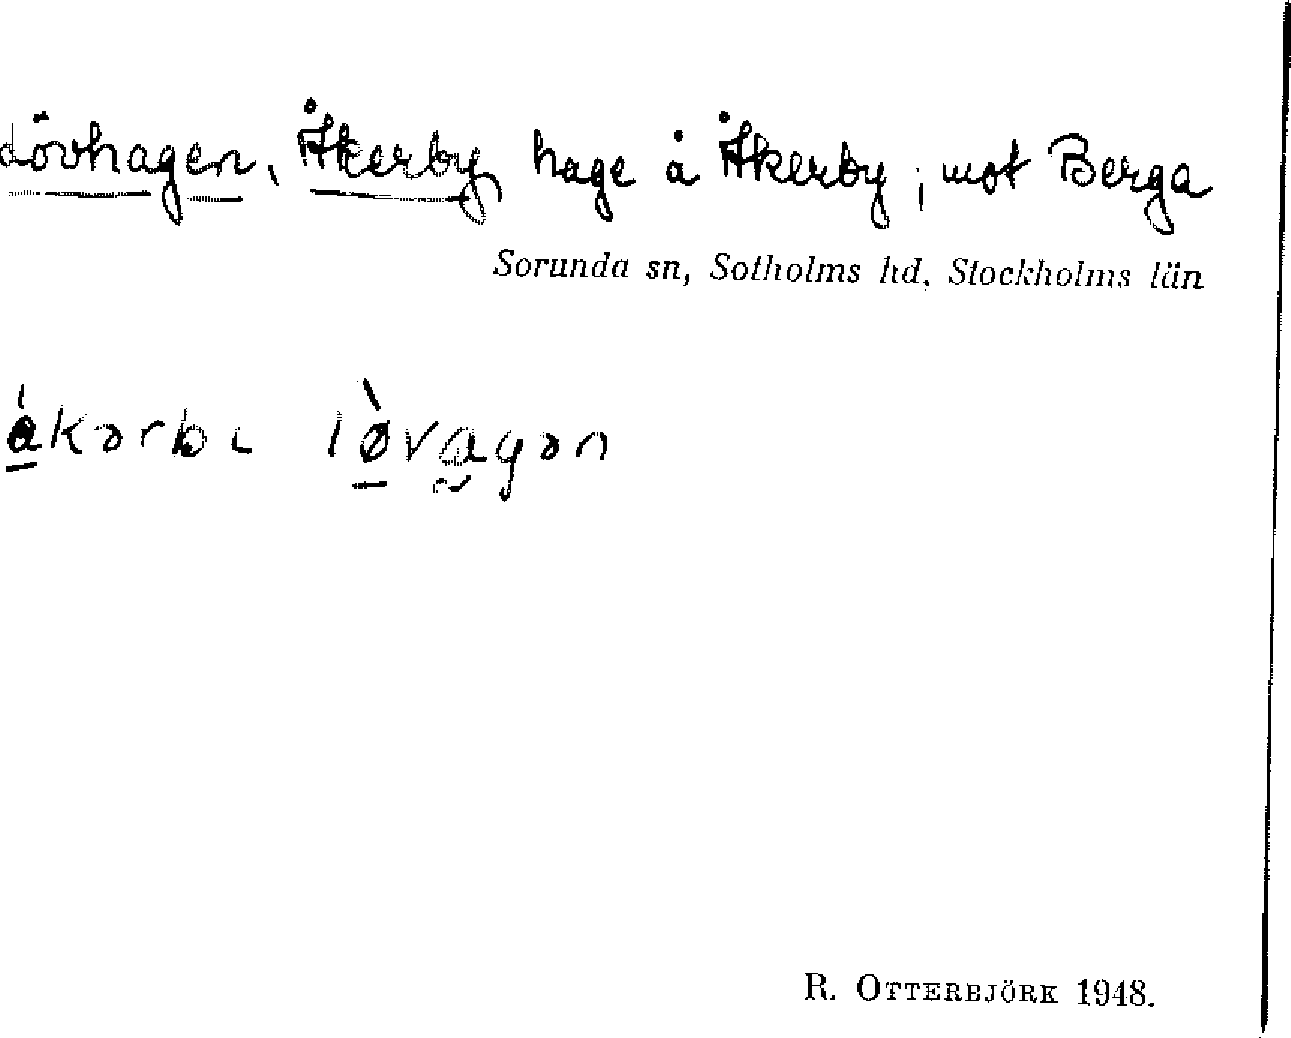 Lövhagen, Åkerby, hage å Åkerby; mot Berga
Sorunda sn, Sotholms hd, Stockholms län
åkərbɩ løvagən
R. OTTERBJÖRK 1948.